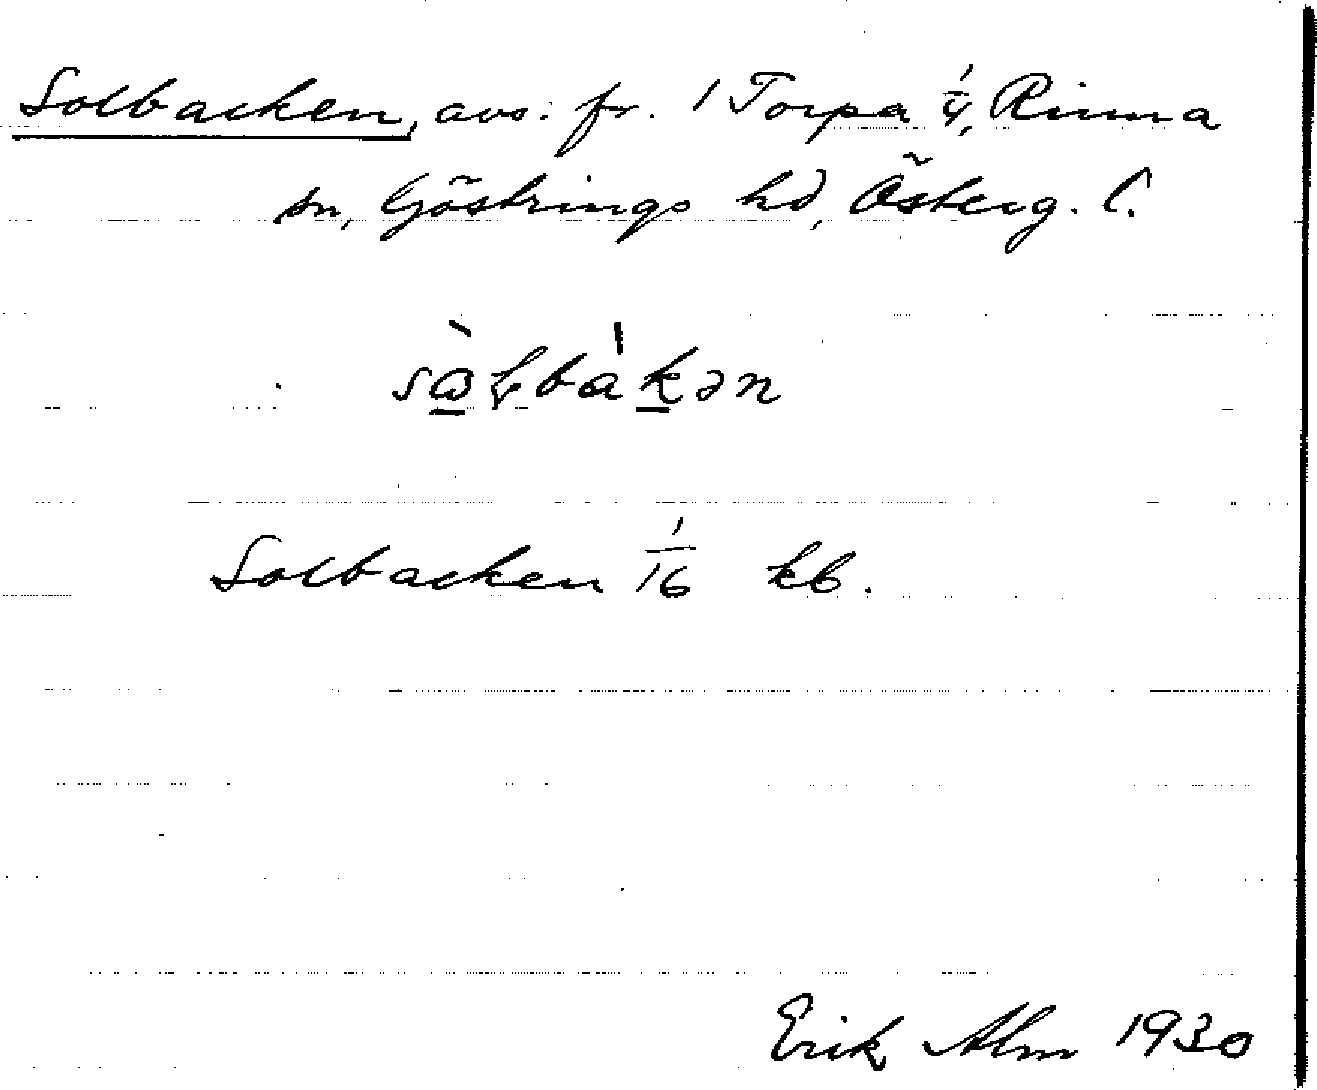 Solbacken, avs. fr. 1 Torpa 1/4, Rinna
sn, Göstrings hd, Österg. l.
Solbacken 1/16 kb.
Erik Alm 1930